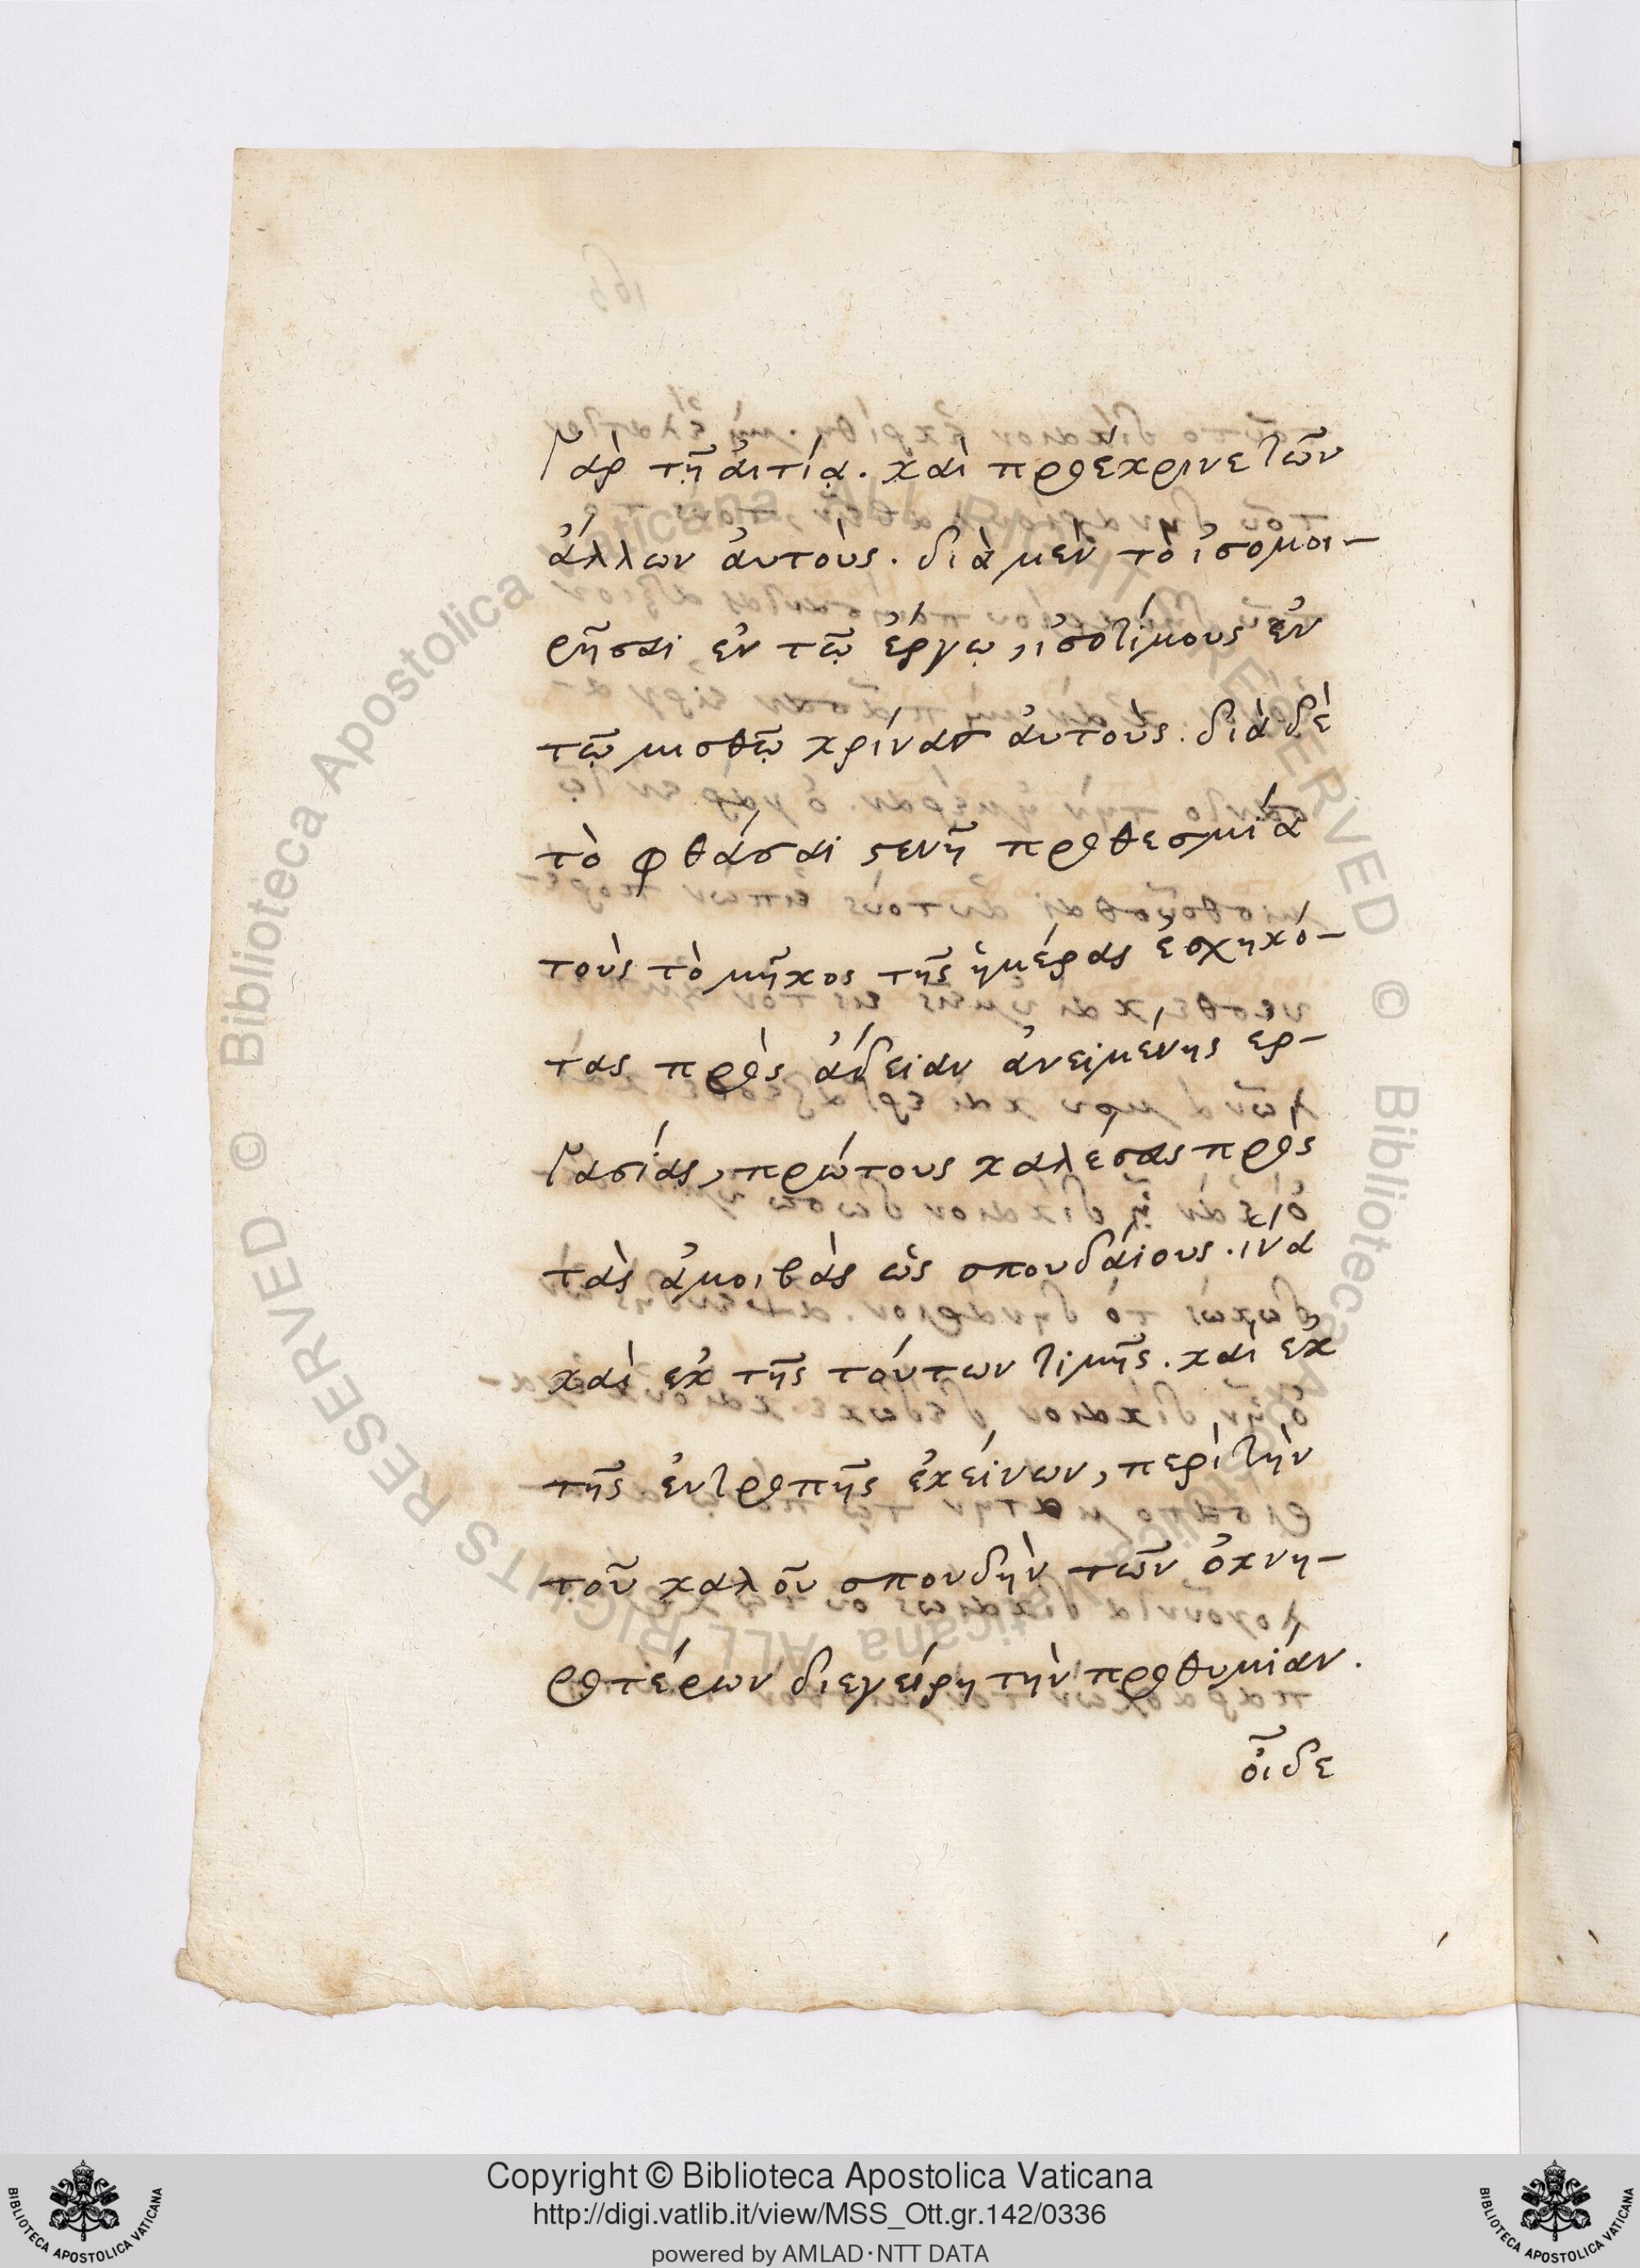 γὰρ τῇ ἀιτίᾳ. καὶ προέκρινε τῶν
ἄλλων ἀυτοὺς. διὰ μὲν τὸ ἰσομοι-
ρῆσαι ἐν τῷ ἔργῳ, ἰσοτίμους ἐν
τῷ μισθῷ κρίνας ἀυτοὺς. διὰ δὲ
τὸ φθάσαι στενῆ προθεσμία
τοὺς τὸ μῆκος τῆς ἡμέρας ἐσχηκό-
τας πρὸς ἄδειαν ἀνειμένης ἐρ-
γασίας, πρώτους καλέσας πρὸς
τὰς ἀμοιβὰς ὡς σπουδάιους. ἵνα
καὶ ἐκ τῆς τούτων τιμῆς. καὶ ἐκ
τῆς ἐντροπῆς ἐκείνων, περὶ τὴν
τοῦ καλοῦ σπουδὴν τῶν ὀκνη-
ροτέρων διεγείρη τὴν προθυμίαν.
οἷδε
Copyright © Biblioteca Apostolica Vaticana
http://digi.vatlib.it/view/MSS_Ott.gr.142/0336
powered by AMLAD·NTT DATA
BIBLIOTECA APOSTOLICA VATICANA
BIBLIOTECA APOSTOLICA VATICANA
© Biblioteca Apostolica Vaticana ALL RIGHTS RESERVED © Biblioteca Apostolica Vaticana ALL RIGHTS RESERVED